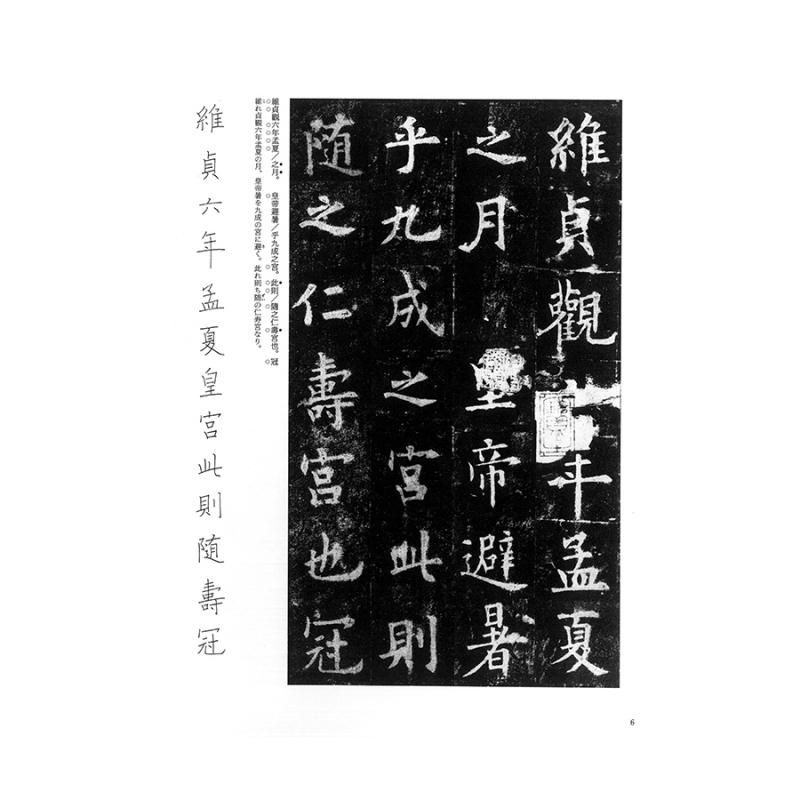 維貞觀六年孟夏
之月 皇帝避暑
乎九成之宮此則
随之仁壽宮也冠
維貞觀六年孟夏／之月。 皇帝避暑／乎九成之宮。此則／隨之仁壽宮也。冠
維れ貞観六年孟夏の月、皇帝暑を九成の宮に避く。此れ則ち随の仁寿宮なり。
維貞六年孟夏皇宮此則随壽冠
6